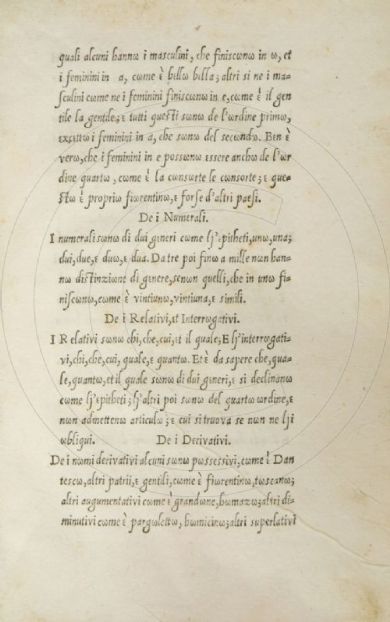 quali alcuni hannω i masculini, che finiscωnω in ω, et
i feminini in a, cωme ὲ bεllω bεlla; altri sì ne i ma-
sculini cωme ne i feminini finiscωnω in e, cωme ὲ il gen
tile la gentile; ε tutti questi sωnω de l'ωrdine primω,
excettω i feminini in a, che sωnω del secωndω. Ben ὲ
verω, che i feminini in e pωssωnω essere anchω de l'ωr
dine quartω, cωme ὲ la cωnsωrte le cωnsωrte; ε que-
stω ὲ propriω fiωrentinω, ε forse d'altri paesi.
De i Numerali.
I numerali sωnω di dui generi cωme lj'epitheti, unω, una;
dui, due, ε duω, ε dua. Da tre poi finω a mille nωn han-
nω distinziωne di genere, senωn quelli, che in unω fi-
niscωnω, cωme ὲ vintiunω, vintiuna, ε simili.
De i Relativi, et Interrogativi.
I Relativi sωnω chi, che, cui, et il quale, E lj'interrωgati-
vi, chi, che, cui, quale, ε quantω. Et ὲ da sapere che, qua-
le, quantω, et il quale sωnω di dui generi, ε si declinanω
cωme lj'epitheti; lj'altri poi sωnω del quartω ωrdine, ε
nωn admettenω articulω; ε cui si truova se nωn ne lji
ωbliqui. De i Derivativi.
De i nωmi derivativi alcuni sωnω pωssessivi, cωme ὲ Dan
tescω, altri patrii, ε gentili, cωme ὲ fiωrentinω, tωscanω;
altri augumentativi cωme ὲ grandωne, hωmazω; altri di-
minutivi cωme ὲ pargωlettω, hωmicinω; altri superlativi